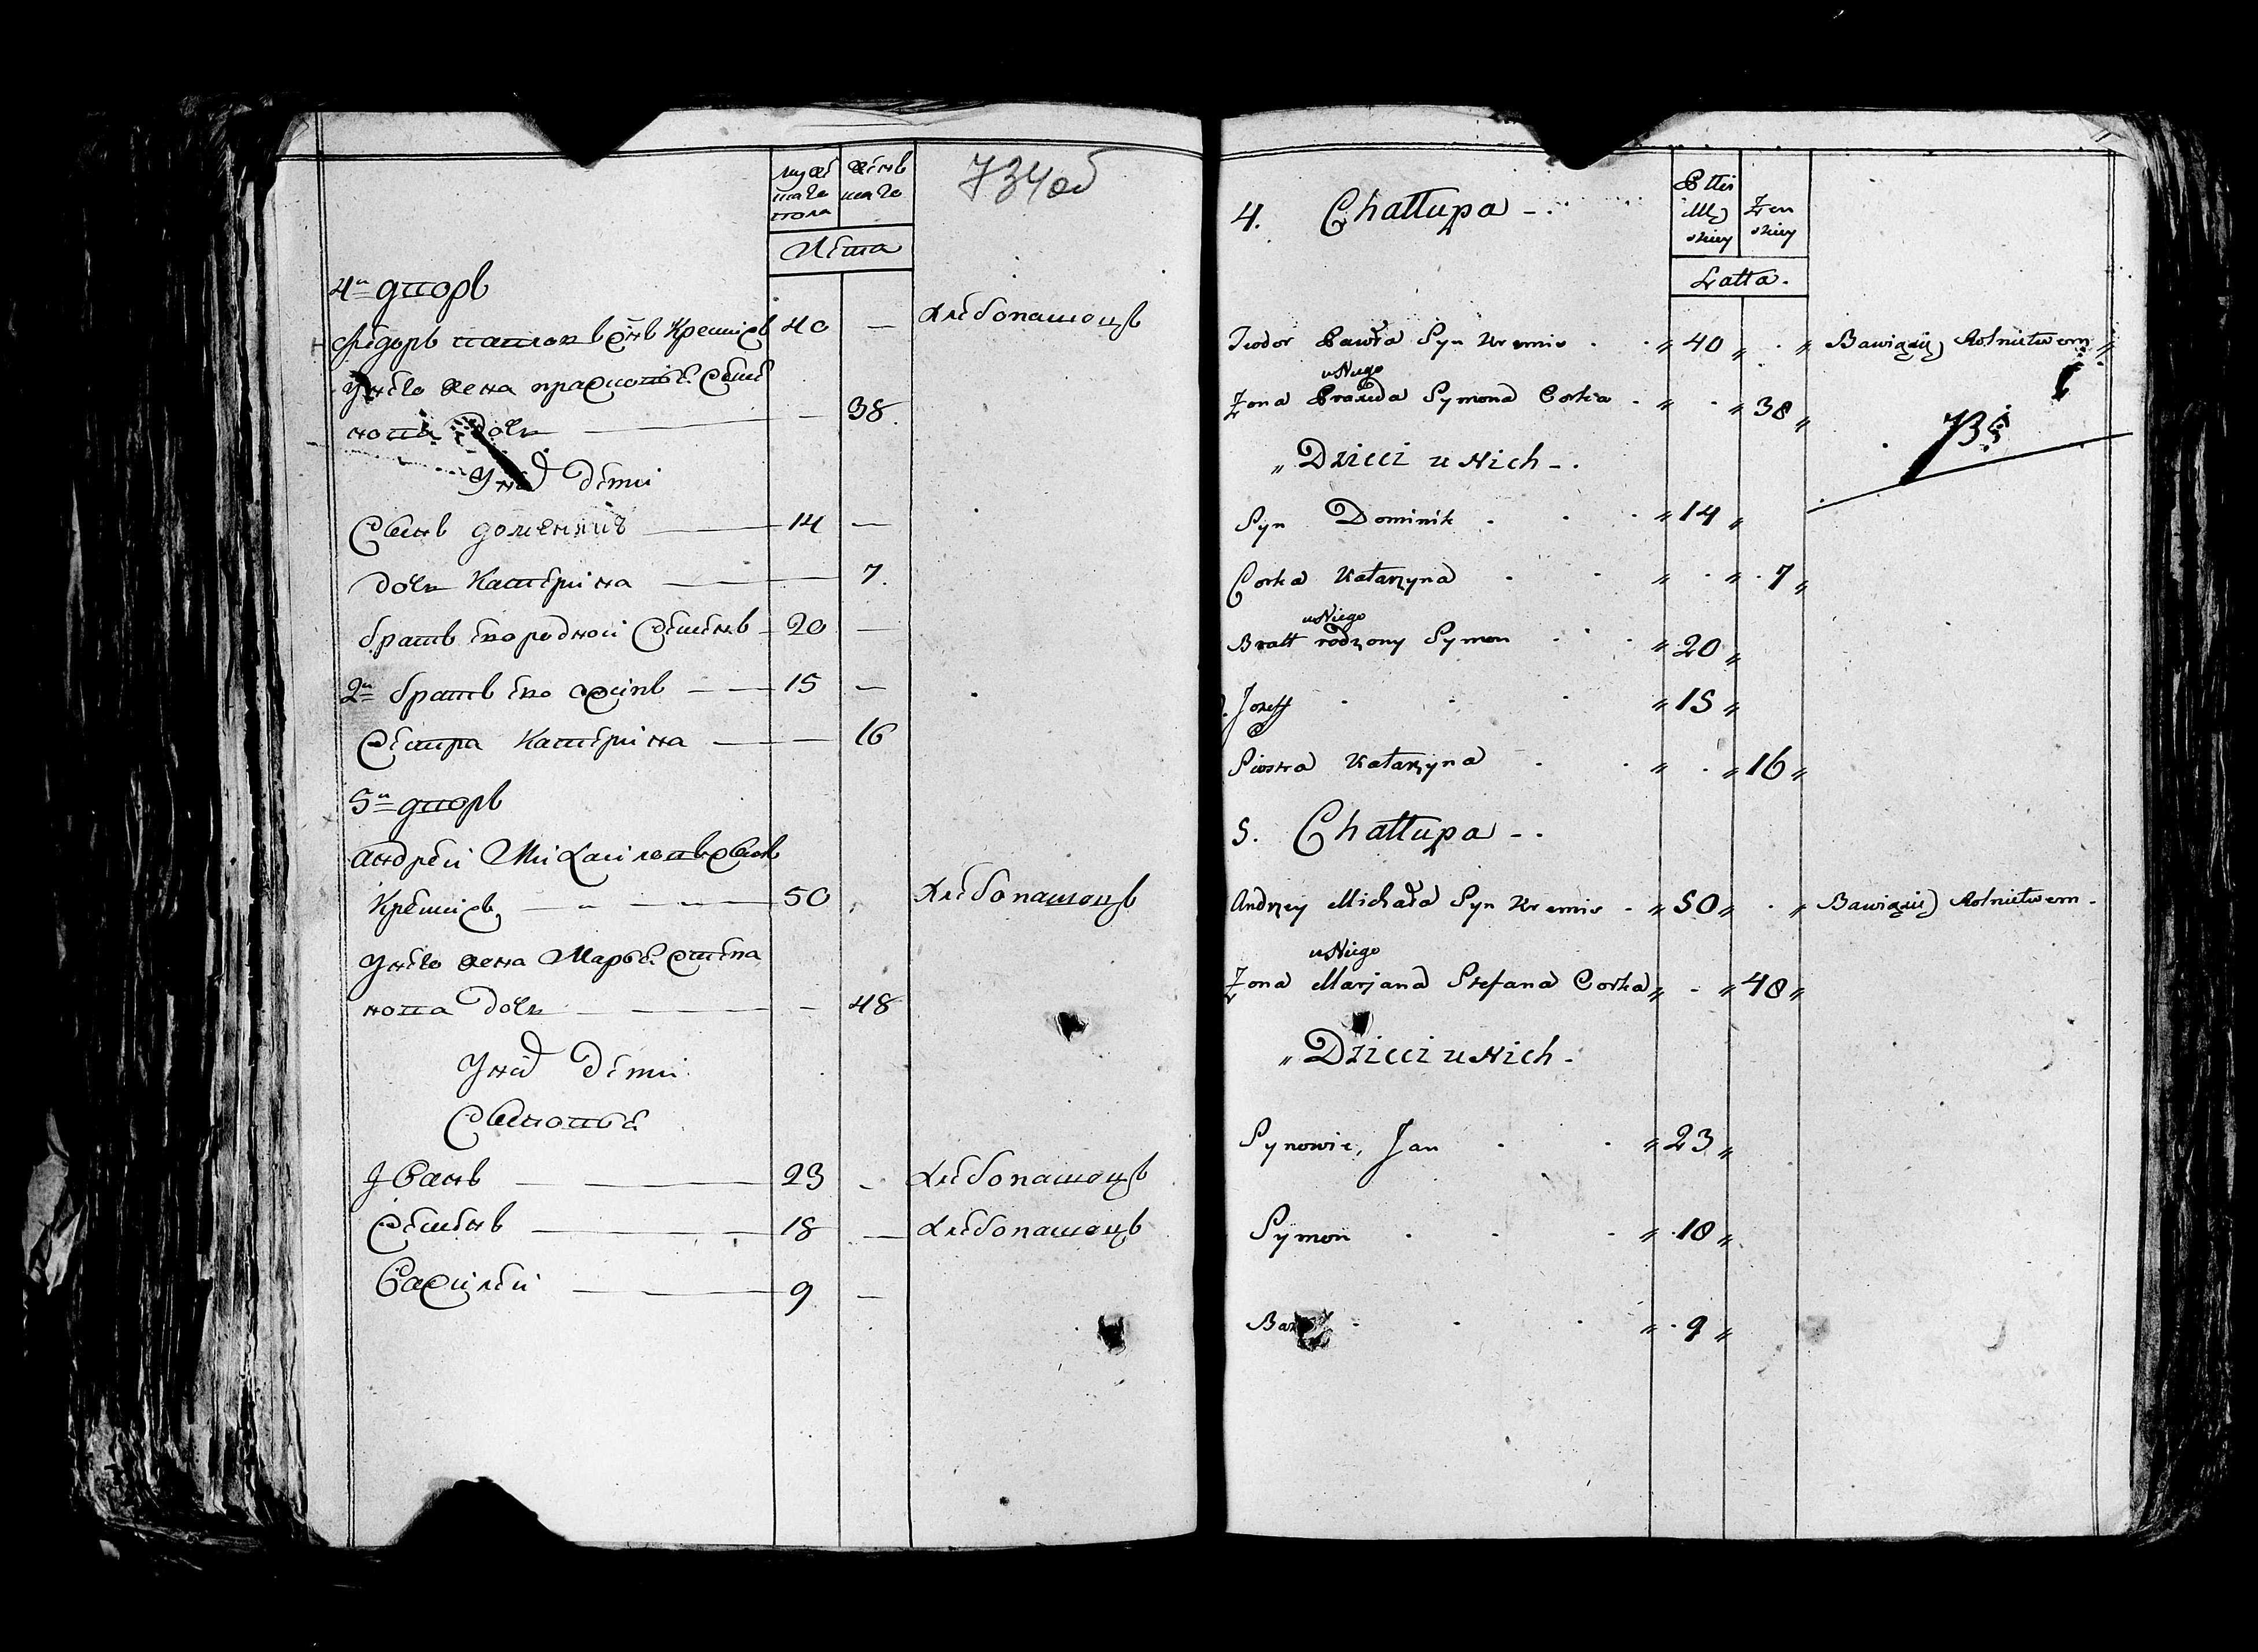 мужескаго пола
женскаго
734об
Лета
4й дворъ
Федоръ павловъ снъ Кремисъ 40 — хлебопашецъ
У него жена прасковья Семе
нова дочь — 38
У них дети
Сынъ доменикъ 14 —
дочь Катерина — 7.
братъ его родной Семенъ 20 —
2й братъ его осипъ 15 —
Сестра Катерина — 16
5й дворъ
андрей Михайловъ Сынъ
Кремисъ 50 хлебопашецъ
У него жена Марья Степа
нова дочь — 48
У них дети
Сыновья
Иванъ 23 — хлебопашецъ
Семенъ 18 — хлебопашецъ
Василей 9 —
4. Chattupa
Płci
Męzskiey
Żenskiey
Latta.
Teodor Pawła Syn Kremis " 40 " . " Bawiący się Rolnictwem "
u Niego
Żona Symona Corka " . " 38 "
735
" Dzieci u Nich
Syn Dominik " 14 "
Corka Katarzyna " . " 7 "
u Niego
Bratt rodzony Symon " 20 "
Jozeff " 15 "
Siostra Katarzyna " . " 16 "
5. Chattupa
Andrzey Michała Syn Kremis " 50 " . " Bawiący się Rolnictwem
u Niego
Żona Marjana Stefana Corka " . " 48 "
" Dzieci u Nich
Synowie, Jan " 23 "
Symon " 18 "
" 9 "